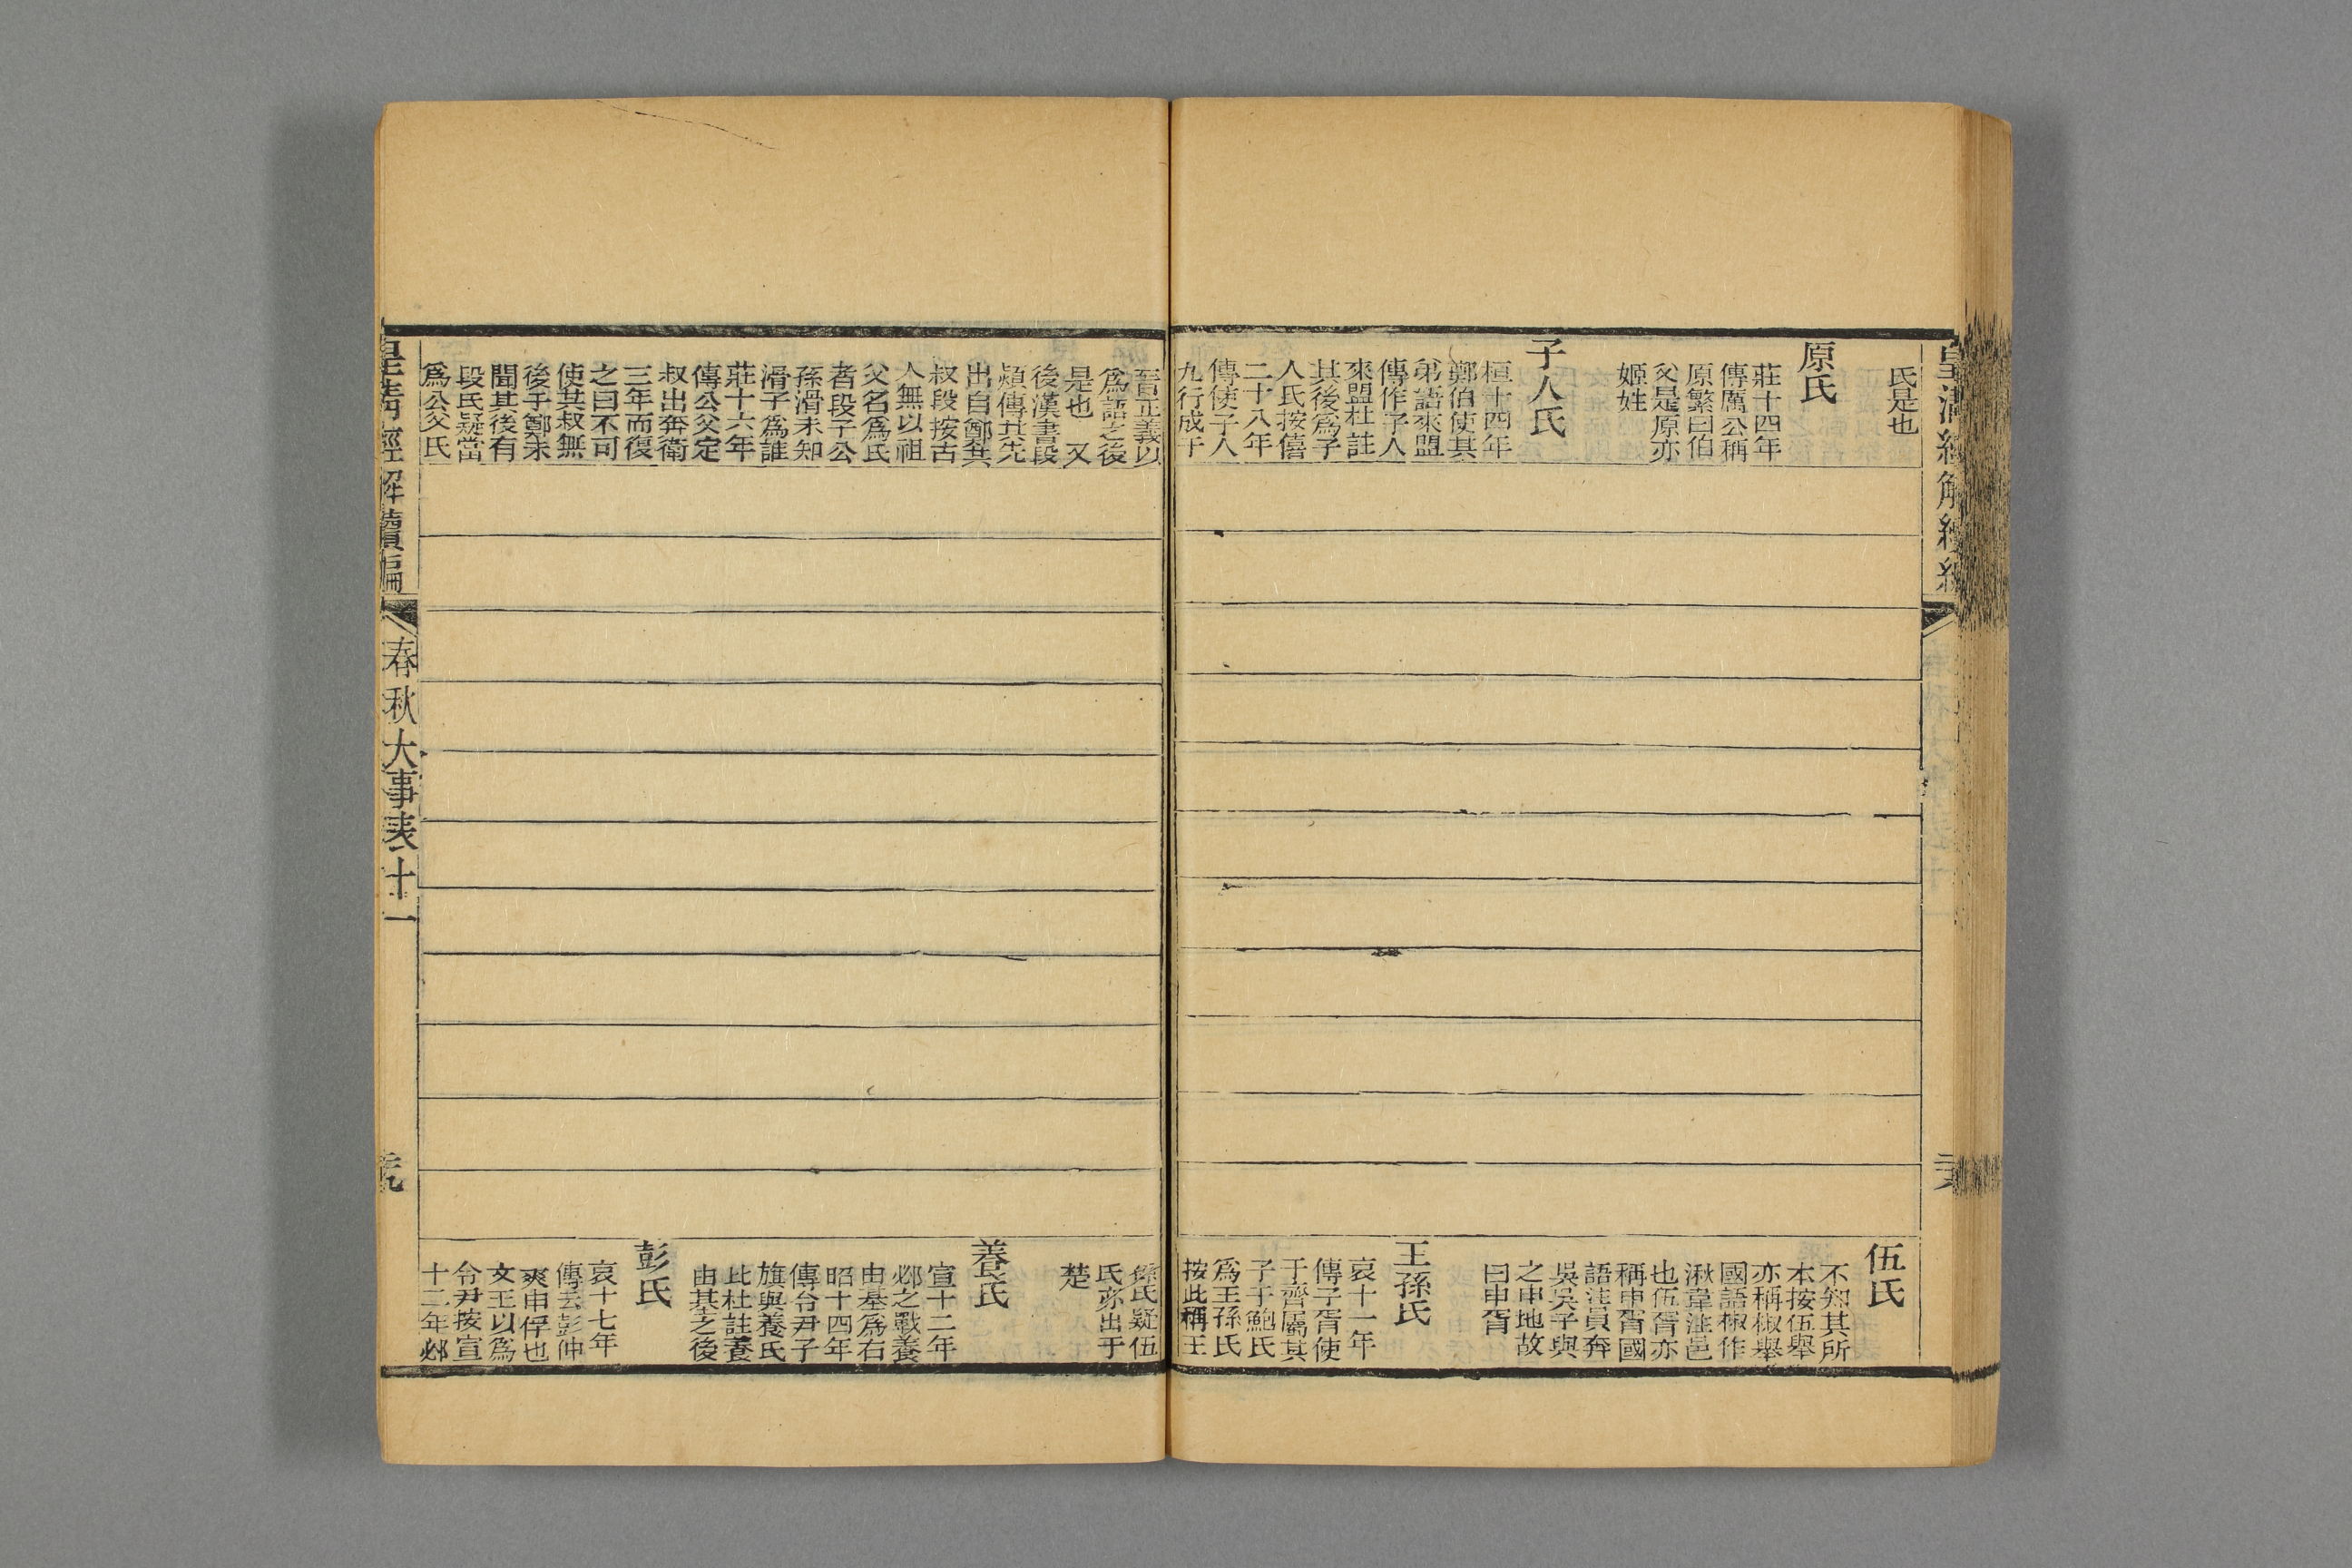 氏是也
原氏
莊十四年
傳厲公稱
原繁曰伯
父是原亦
姬姓
子人氏
桓十四年
鄭伯使其
弟語來盟
傳作子人
來盟杜註
其後爲子
人氏按僖
二十八年
傳使子人
九行成于
伍氏
不知其所
本按伍舉
亦稱椒舉
國語椒作
湫韋註邑
也伍胥亦
稱申胥國
語註員奔
吳吳子與
之申地故
曰申胥
王孫氏
哀十一年
傳子胥使
于齊屬其
子于鮑氏
爲王孫氏
按此稱王
晉正義以
爲語之後
是也 又
後漢書段
熲傳其先
出自鄭共
叔段按古
人無以祖
父名爲氏
者段子公
孫滑未知
滑子爲誰
莊十六年
傳公父定
叔出奔衛
三年而復
之曰不可
使其叔無
後于鄭未
聞其後有
段氏疑當
爲公父氏
孫氏疑伍
氏亦出于
楚
養氏
宣十二年
邲之戰養
由基爲右
昭十四年
傳令尹子
旗與養氏
比杜註養
由基之後
彭氏
哀十七年
傳云彭仲
爽申俘也
文王以爲
令尹按宣
十二年邲
皇清經解續編
春秋大事表十一